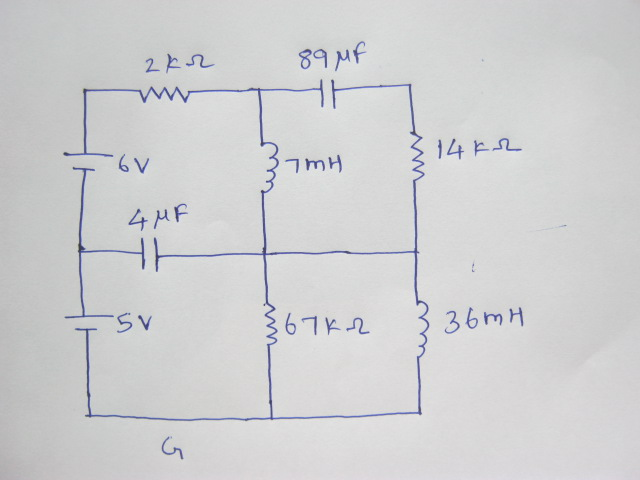 2kΩ
89μF
6V
7mH
14kΩ
4μF
5V
67kΩ
36mH
G